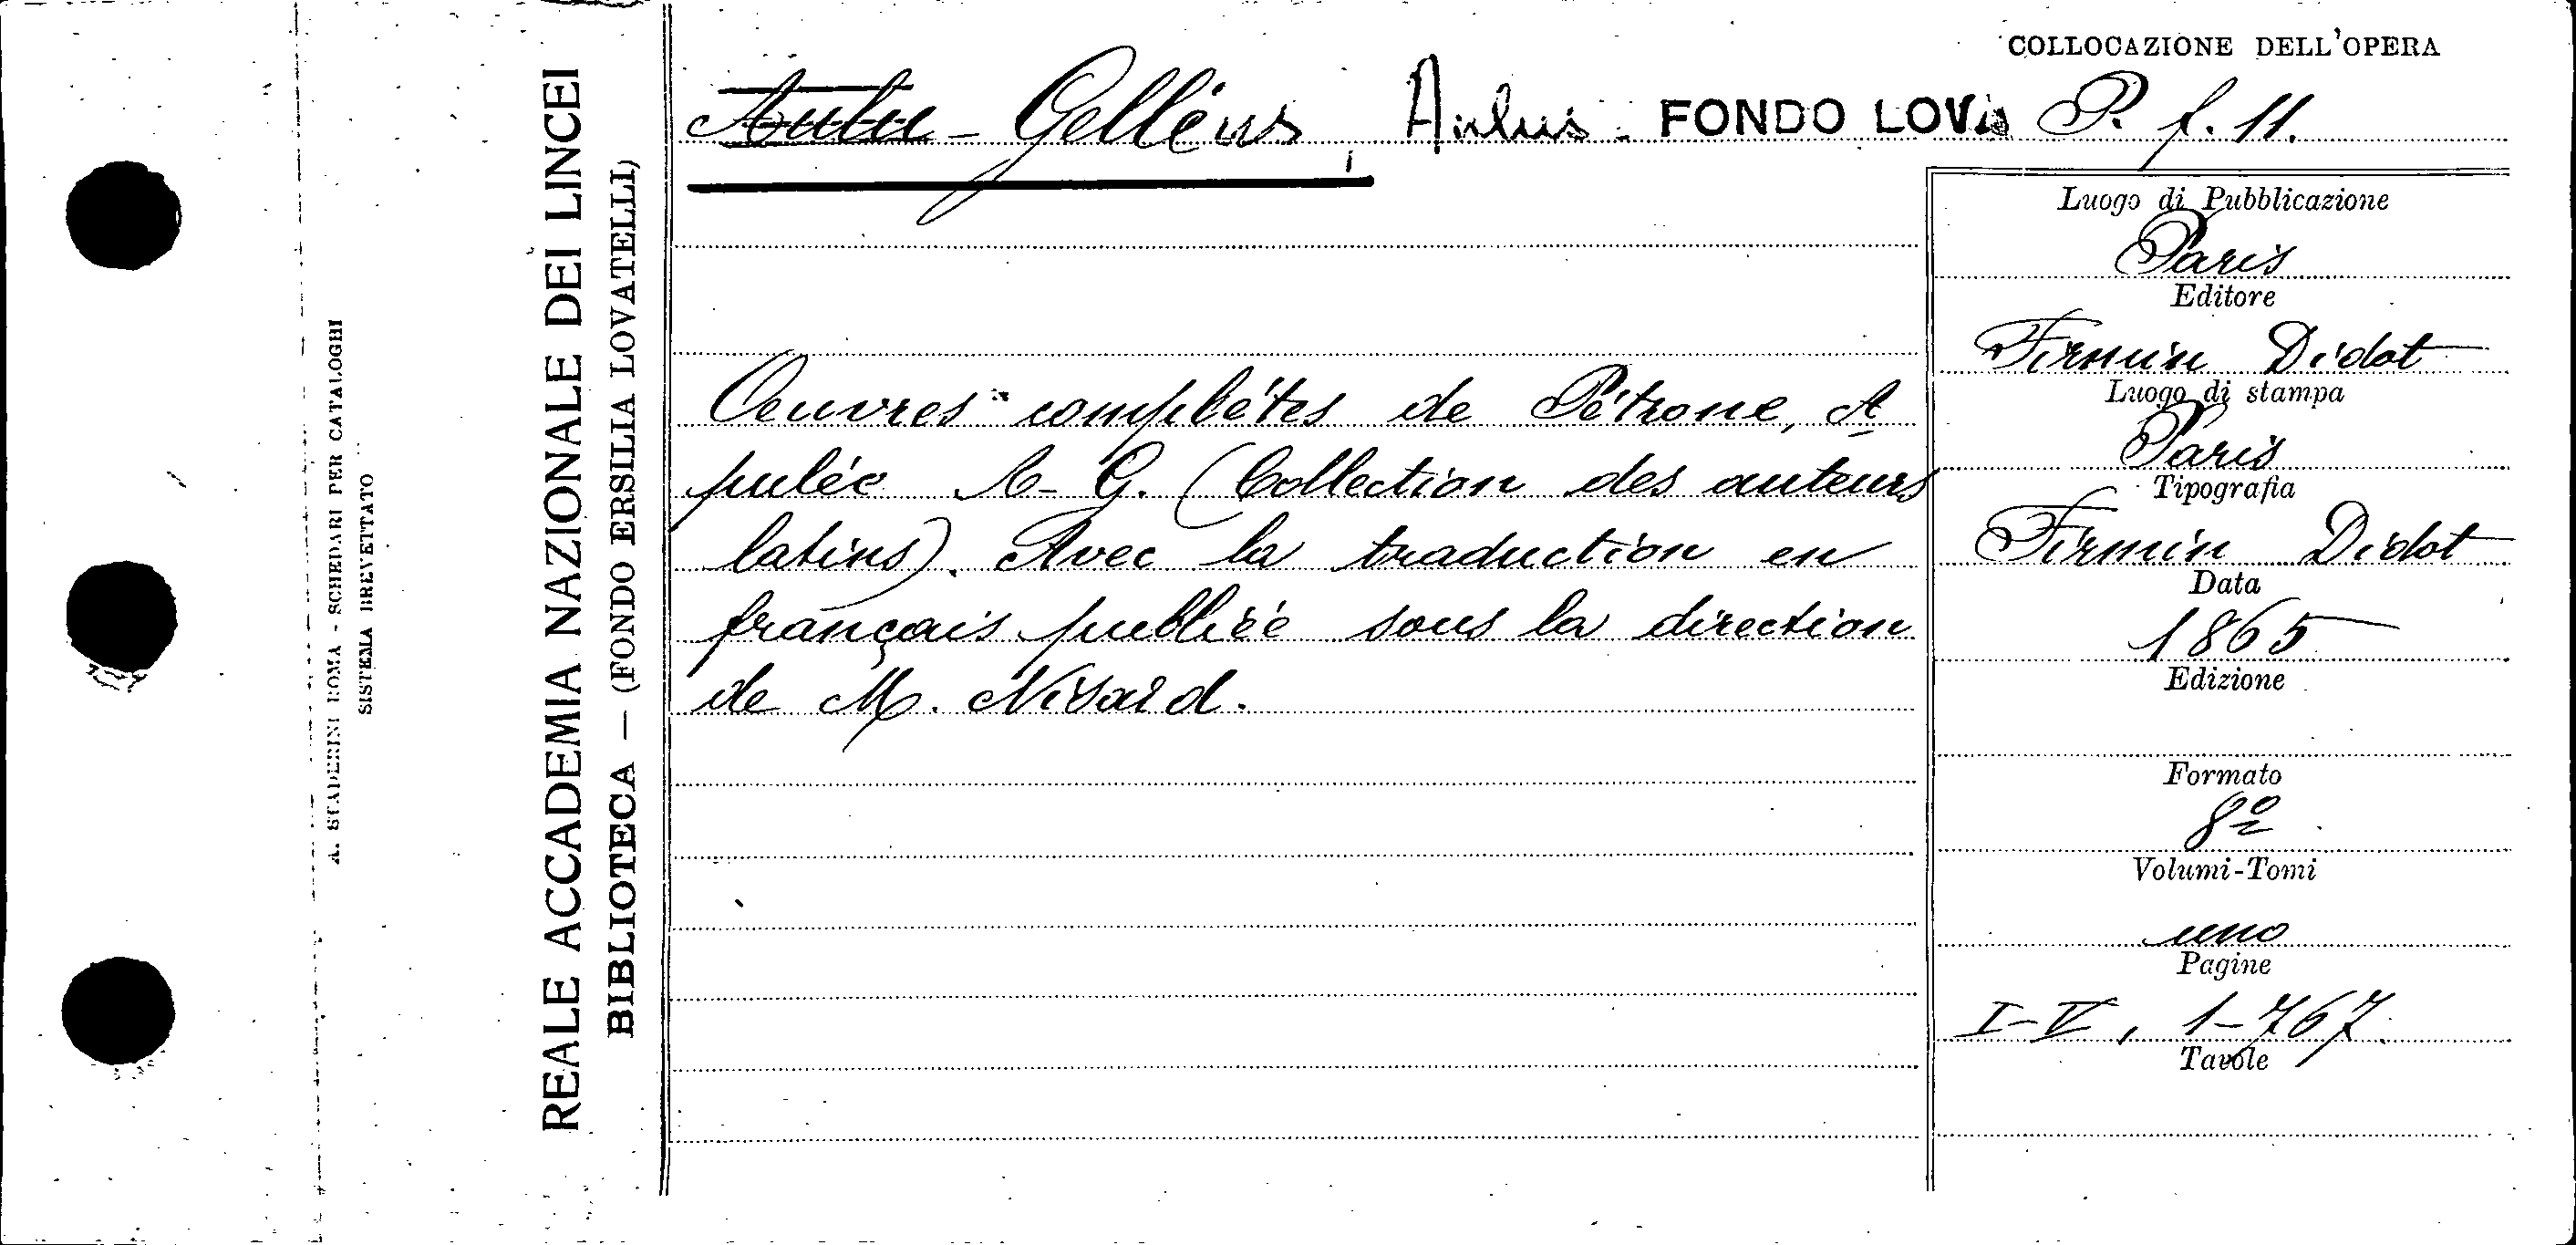 COLLOCAZIONE DELL'OPERA
Aulu - Gellius, Aulus - FONDO LOVA P. f. 11.
Oeuvres complètes de Pétrone, A-
pulée A-G. (Collection des auteurs
latins). Avec la traduction en
français publiée sous la direction
de M. Nisard.
Luogo di Pubblicazione
Paris
Editore
Firmin Didot
Luogo di stampa
Paris
Tipografia
Firmin Didot
Data
1865
Edizione
Formato
8º
Volumi-Tomi
uno
Pagine
I-V, 1-767
Tavole
REALE ACCADEMIA NAZIONALE DEI LINCEI
BIBLIOTECA — (FONDO ERSILIA LOVATELLI)
A. STADERINI ROMA - SCHEDARI PER CATALOGHI
SISTEMA BREVETTATO